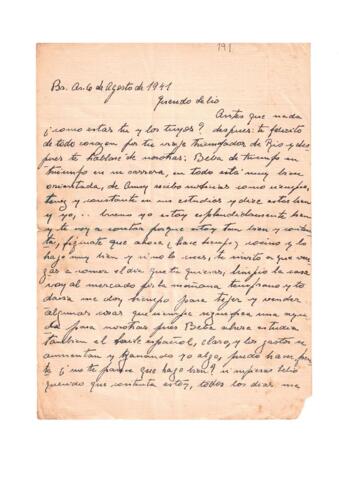 191
Bs. As. 6 de Agosto de 1941
Querido Lelio
Antes que nada
¿como estas tu y los tuyos? despues: te felicito
de todo corazon por tu viaje triunfador de Rio y des
pues te hablaré de nosotras: Beba de triunfo en
triunfo en su carrera, en todo está muy bien
orientada, de Amey recibo noticias como siempre,
tenaz y constante en sus estudios y dice estar bien
y yo... bueno yo estoy esplendidamente bien
y te voy a contar porque estoy tan bien y conten
ta, figurate que ahora (hace tiempo) cocino y lo
hago muy bien y si no lo crees, te invito a que ven
gas a comer el dia que tu quieras, limpio la casa
voy al mercado por la mañana temprano y to
davia me doy tiempo para tejer y vender
algunas cosas que siempre significa una ayu
da para nosotras pues Beba ahora estudia
tambien el baile español, claro, y los gastos se
aumentan y ganando yo algo, puedo hacer fren
te ¿no te parece que hago bien? si supieras Lelio
querido que contenta estoy, todos los dias me